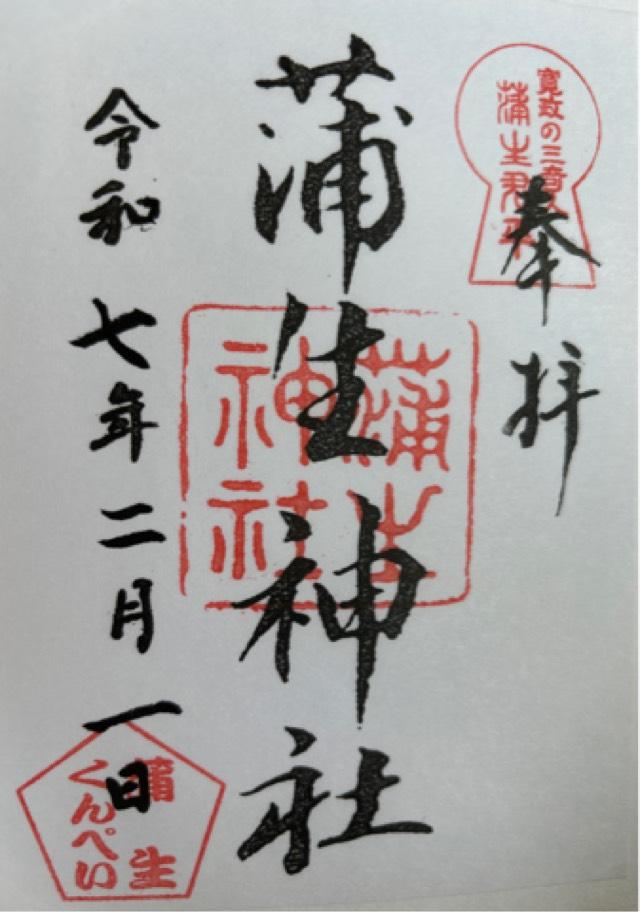 寛政の三奇人
蒲生君平
奉拝
蒲生神社
蒲生
神社
令和七年二月一日
蒲生
くんぺい